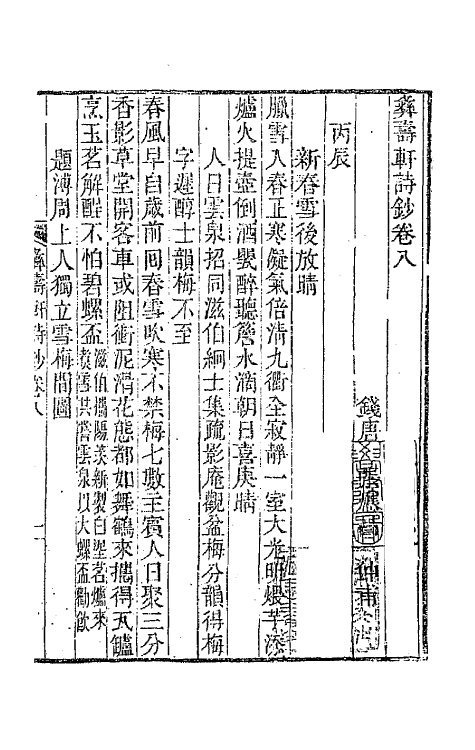 彝壽軒詩鈔卷八
錢唐　仲甫
丙辰
新春雪後放晴
臘雪入春正寒凝氣倍清九衢全寂靜一室大光明煨芋添
爐火提壺倒酒甖醉聽簷水滴朝日喜庚晴
人日雲泉招同滋伯絅士集疏影庵觀盆梅分韻得梅
字遲醇士韻梅不至
春風早自歲前回春雪吹寒不禁梅七數主賓人日聚三分
香影草堂開客車或阻衝泥滑花態都如舞鶴來攜得瓦鑪
烹玉茗解酲不怕碧螺盃滋伯攜陽羨新製白埿茗爐來煑雪共嘗雲泉以大螺盃勸飲
題溥周上人獨立雪梅間圖
彝壽軒詩鈔卷八　一